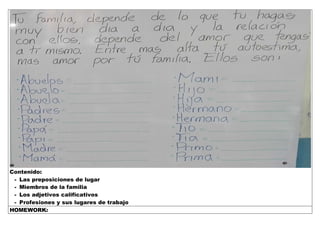 Tu Familia, depende de lo que tu hagas
muy bien dia a dia y la relación
con ellos, depende del amor que tengas
a ti mismo. Entre mas alta tú autoestima,
mas amor por tú familia. Ellos son:
- Abuelos =
- Abuelo =
- Abuela =
- Padres =
- Padre =
- Papá =
- Papi =
- Madre =
- Mamá =
- Mami =
- Hijo =
- Hija =
- Hermano =
- Hermana =
- Tio =
- Tia =
- Primo =
- Prima =
Contenido:
- Las preposiciones de lugar
- Miembros de la familia
- Los adjetivos calificativos
- Profesiones y sus lugares de trabajo
HOMEWORK: